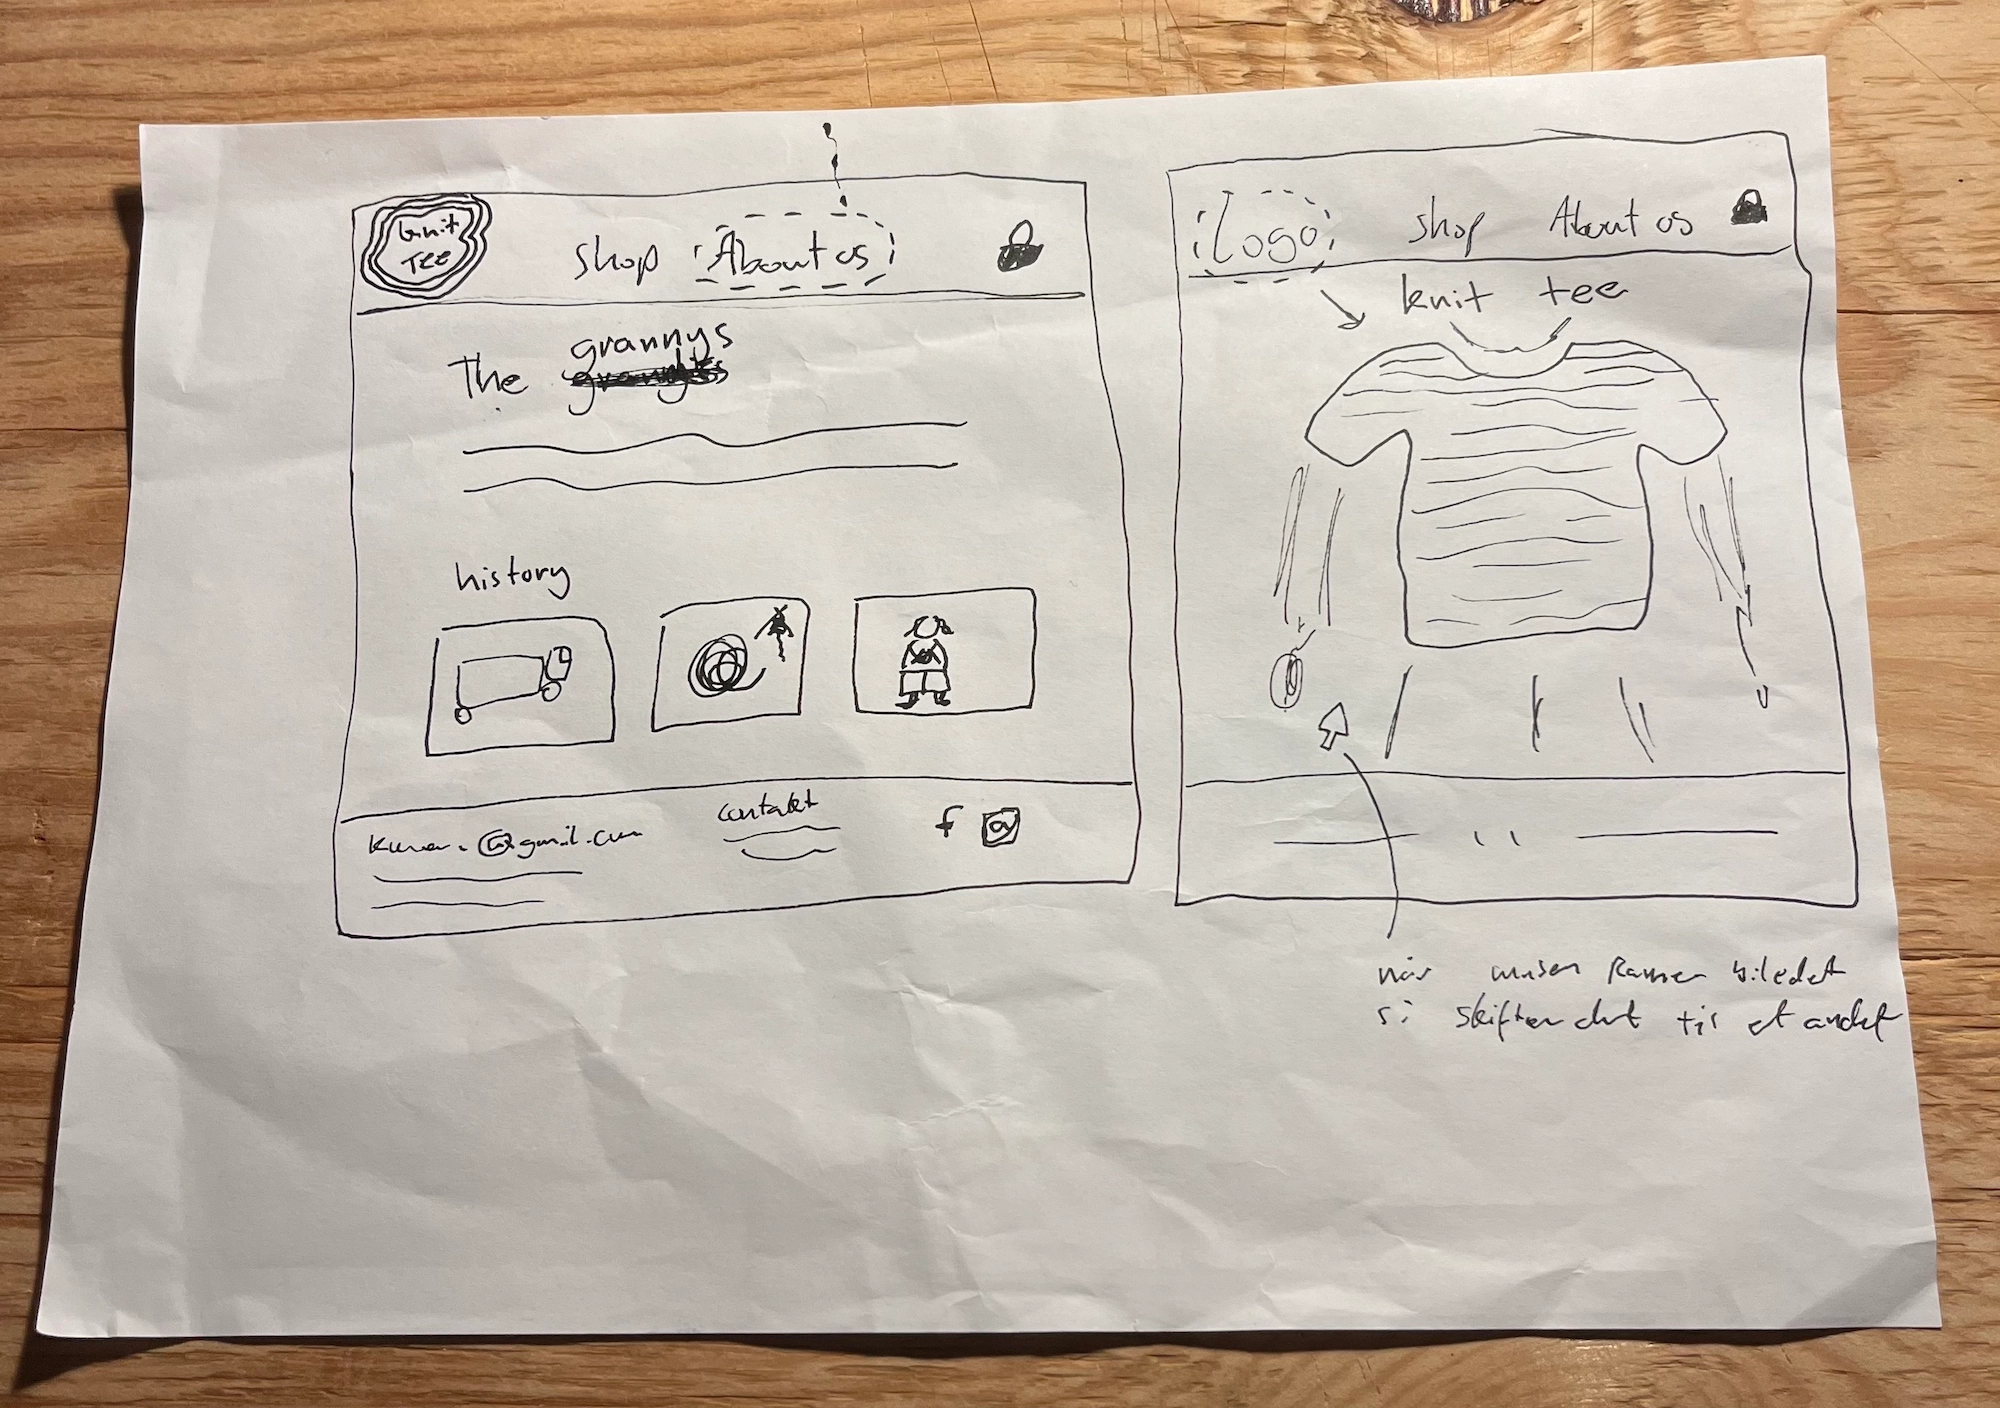 knit
Tee
shop About us
The grannys
history
@gmail.com
contakt
f
Logo shop About us
knit tee
når musen Rammer biledet
så skifter det til et andet